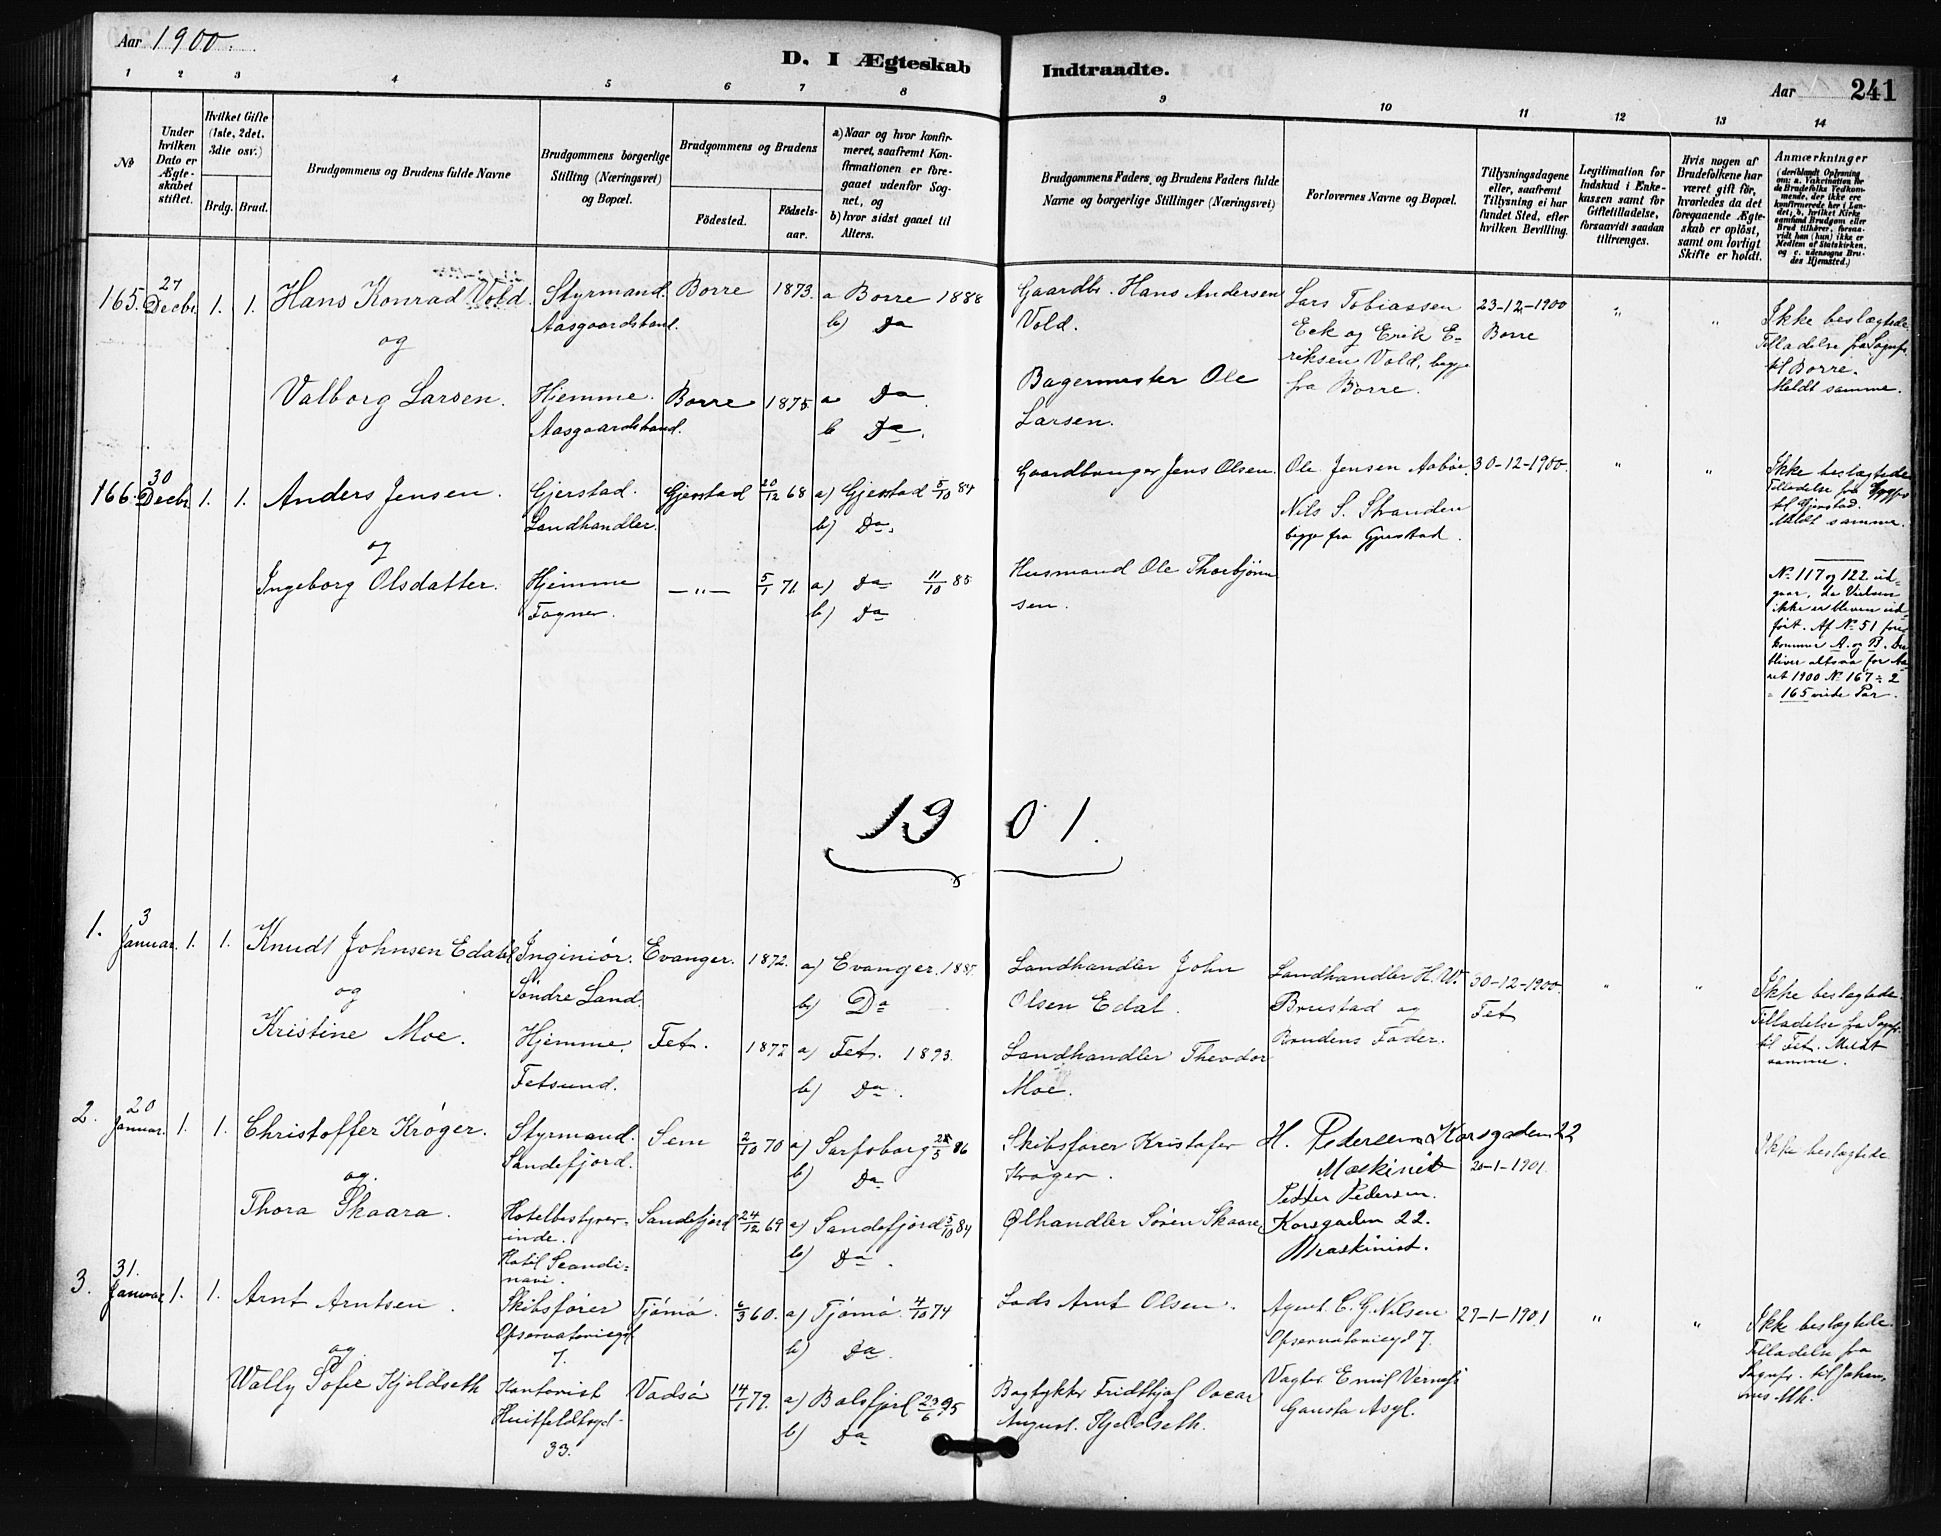 Aar 1900.
D. I Ægteskab Indtraadte.
Aar 241
1 2 3 4 5 6 7 8 9 10 11 12 13 14
No
Under hvilken Dato er Ægteskabet stiftet.
Hvilket Gifte (1ste, 2det, 3die osv.)
Brdg. Brud.
Brudgommens og Brudens fulde Navne
Brudgommens borgerlige Stilling (Næringsvei) og Bopæl.
Brudgommens og Brudens
Fødested. Fødsels-aar.
a) Naar og hvor konfirmeret, saafremt Konfirmationen er foregaaet udenfor Sognet, og
b) hvor sidst gaaet til Alters.
Brudgommens Faders, og Brudens Faders fulde Navne og borgerlige Stillinger (Næringsvei)
Forlovernes Navne og Bopæl.
Tillysningsdagene eller, saafremt Tillysning ei har fundet Sted, efter hvilken Bevilling.
Legitimation for Indskud i Enkekassen samt for Giftetilladelse, forsaavidt saadan tiltrænges.
Hvis nogen af Brudefolkene har været gift før, hvorledes da det foregaaende Ægteskab er opløst, samt om lovligt Skifte er holdt.
Anmærkninger
(deriblandt Oplysning om: a. Vakcination for de Brudefolks Vedkommende, der ikke ere konfirmerede her i Landet; b. hvilket Kirkesamfund Brudgom eller Brud tilhører, forsaavidt han (hun) ikke er Medlem af Statskirken, og c. udensogns Brudes Hjemsted.)
165. 27 Decbr. 1. 1. Hans Konrad Vold.
og
Valborg Larsen.
Styrmand.
Aasgaardstrand.
Hjemme.
Aasgaardstrand.
Borre 1873. a Borre 1888
b) Do
Borre 1875. a Do
b Do.
Gaardbr. Hans Andersen
Vold.
Bagermester Ole
Larsen.
Lars Tobiassen
Eek og Erik E-
riksen Vold, begge
fra Borre.
23-12-1900
Borre
" "
Ikke beslægtede.
Tilladelse fra Sognepr.
til Borre.
Meldt samme.
166. 30 Decbr. 1. 1. Anders Jensen.
og
Ingeborg Olsdatter.
Gjerstad.
Landhandler.
Hjemme
Gjerstad 20/12 68 a) Gjerstad 5/10 84
b) Do.
— " — 5/1 71. a) Do 11/10 85
b) Do
Gaardbruger Jens Olsen.
Husmand Ole Thorbjørn
sen.
Ole Jensen Aabøe
Nils S. Stranden
begge fra Gjerstad.
30-12-1900.
" "
Ikke beslægtede
Tilladelse fra Sognepr
til Gjerstad.
Meldt samme.
No 117 og 122 ud-
gaar, da Vielsen
ikke er bleven ud-
ført. Af No 51 fore-
kommer A. og B. Der
bliver altsaa for Aa-
ret 1900 No 167 ÷ 2
= 165 viede Par.
1901.
1. 3 Januar. 1. 1. Knudt Johnsen Edal
og
Kristine Moe.
Ingeniør.
Søndre Land.
Hjemme.
Fetsund.
Evanger. 1872. a) Evanger. 1887.
b) Do
Fet. 1872 a) Fet. 1893.
b) Do.
Landhandler John
Olsen Edal.
Landhandler Theodor
Moe.
Landhandler H. W.
Brustad og
Brudens Fader.
30-12-1900.
Fet
" "
Ikke beslægtede
Tilladelse fra Sognepr.
til Fet. Meldt
samme.
2. 20 Januar. 1. 1. Christoffer Krøger.
og
Thora Skaara.
Styrmand.
Sandefjord.
Hotelbestyrer-
inde.
Hotel Scandi-
navi.
Sem 2/10 70 a) Sarpsborg 86
b) Do
Sandefjord 24/12 69 a) Sandefjord 5/10 84
b) Do.
Skibsfører Kristofer
Krøger.
Ølhandler Søren Skaare
H. Pedersen Korsgaden 22
Maskinist
Petter Pedersen.
Korsgaden 22.
Maskinist.
20-1-1901.
Ikke beslægtede
3. 31. Januar 1. 1. Arnt Arntsen.
og
Wally Sofie Kjeldseth
Skibsfører
Observatoriegd
7.
Kontorist
Huitfeldtsgd-
33.
Tjømø. 6/3 60. a) Tjømø. 4/10 74
b) Do.
Vadsø 14/1 79. a) Balsfjord 23/6 95
b) Do
Lods Arnt Olsen.
Bogtykker Fridthjof Oscar
August. Kjeldseth.
Agent. C. G. Nilsen
Observatoriegd 7.
Vagtm. Emil
Gausta Asyl.
27-1-1901
" "
Ikke beslægtede.
Tilladelse fra
Sognepr. til Johan-
nes Mh.